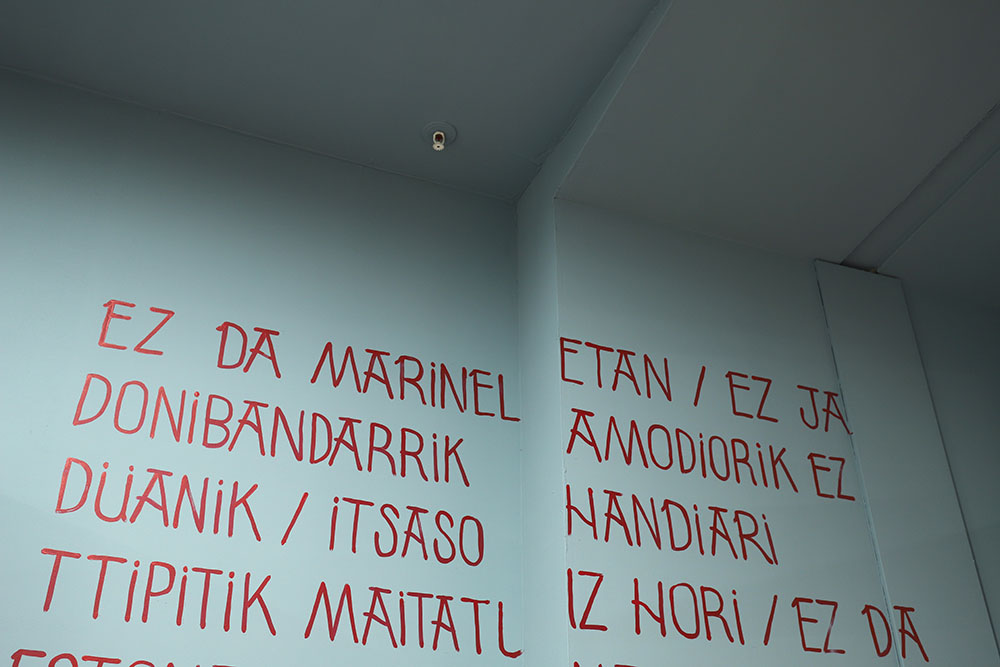 EZ DA MARINELETAN / EZ JA
DONIBANDARRiK AMODiORiK EZ
DÜANiK / iTSASO HANDiARi
TTiPiTiK MAiTATUIZ HORi / EZ DA